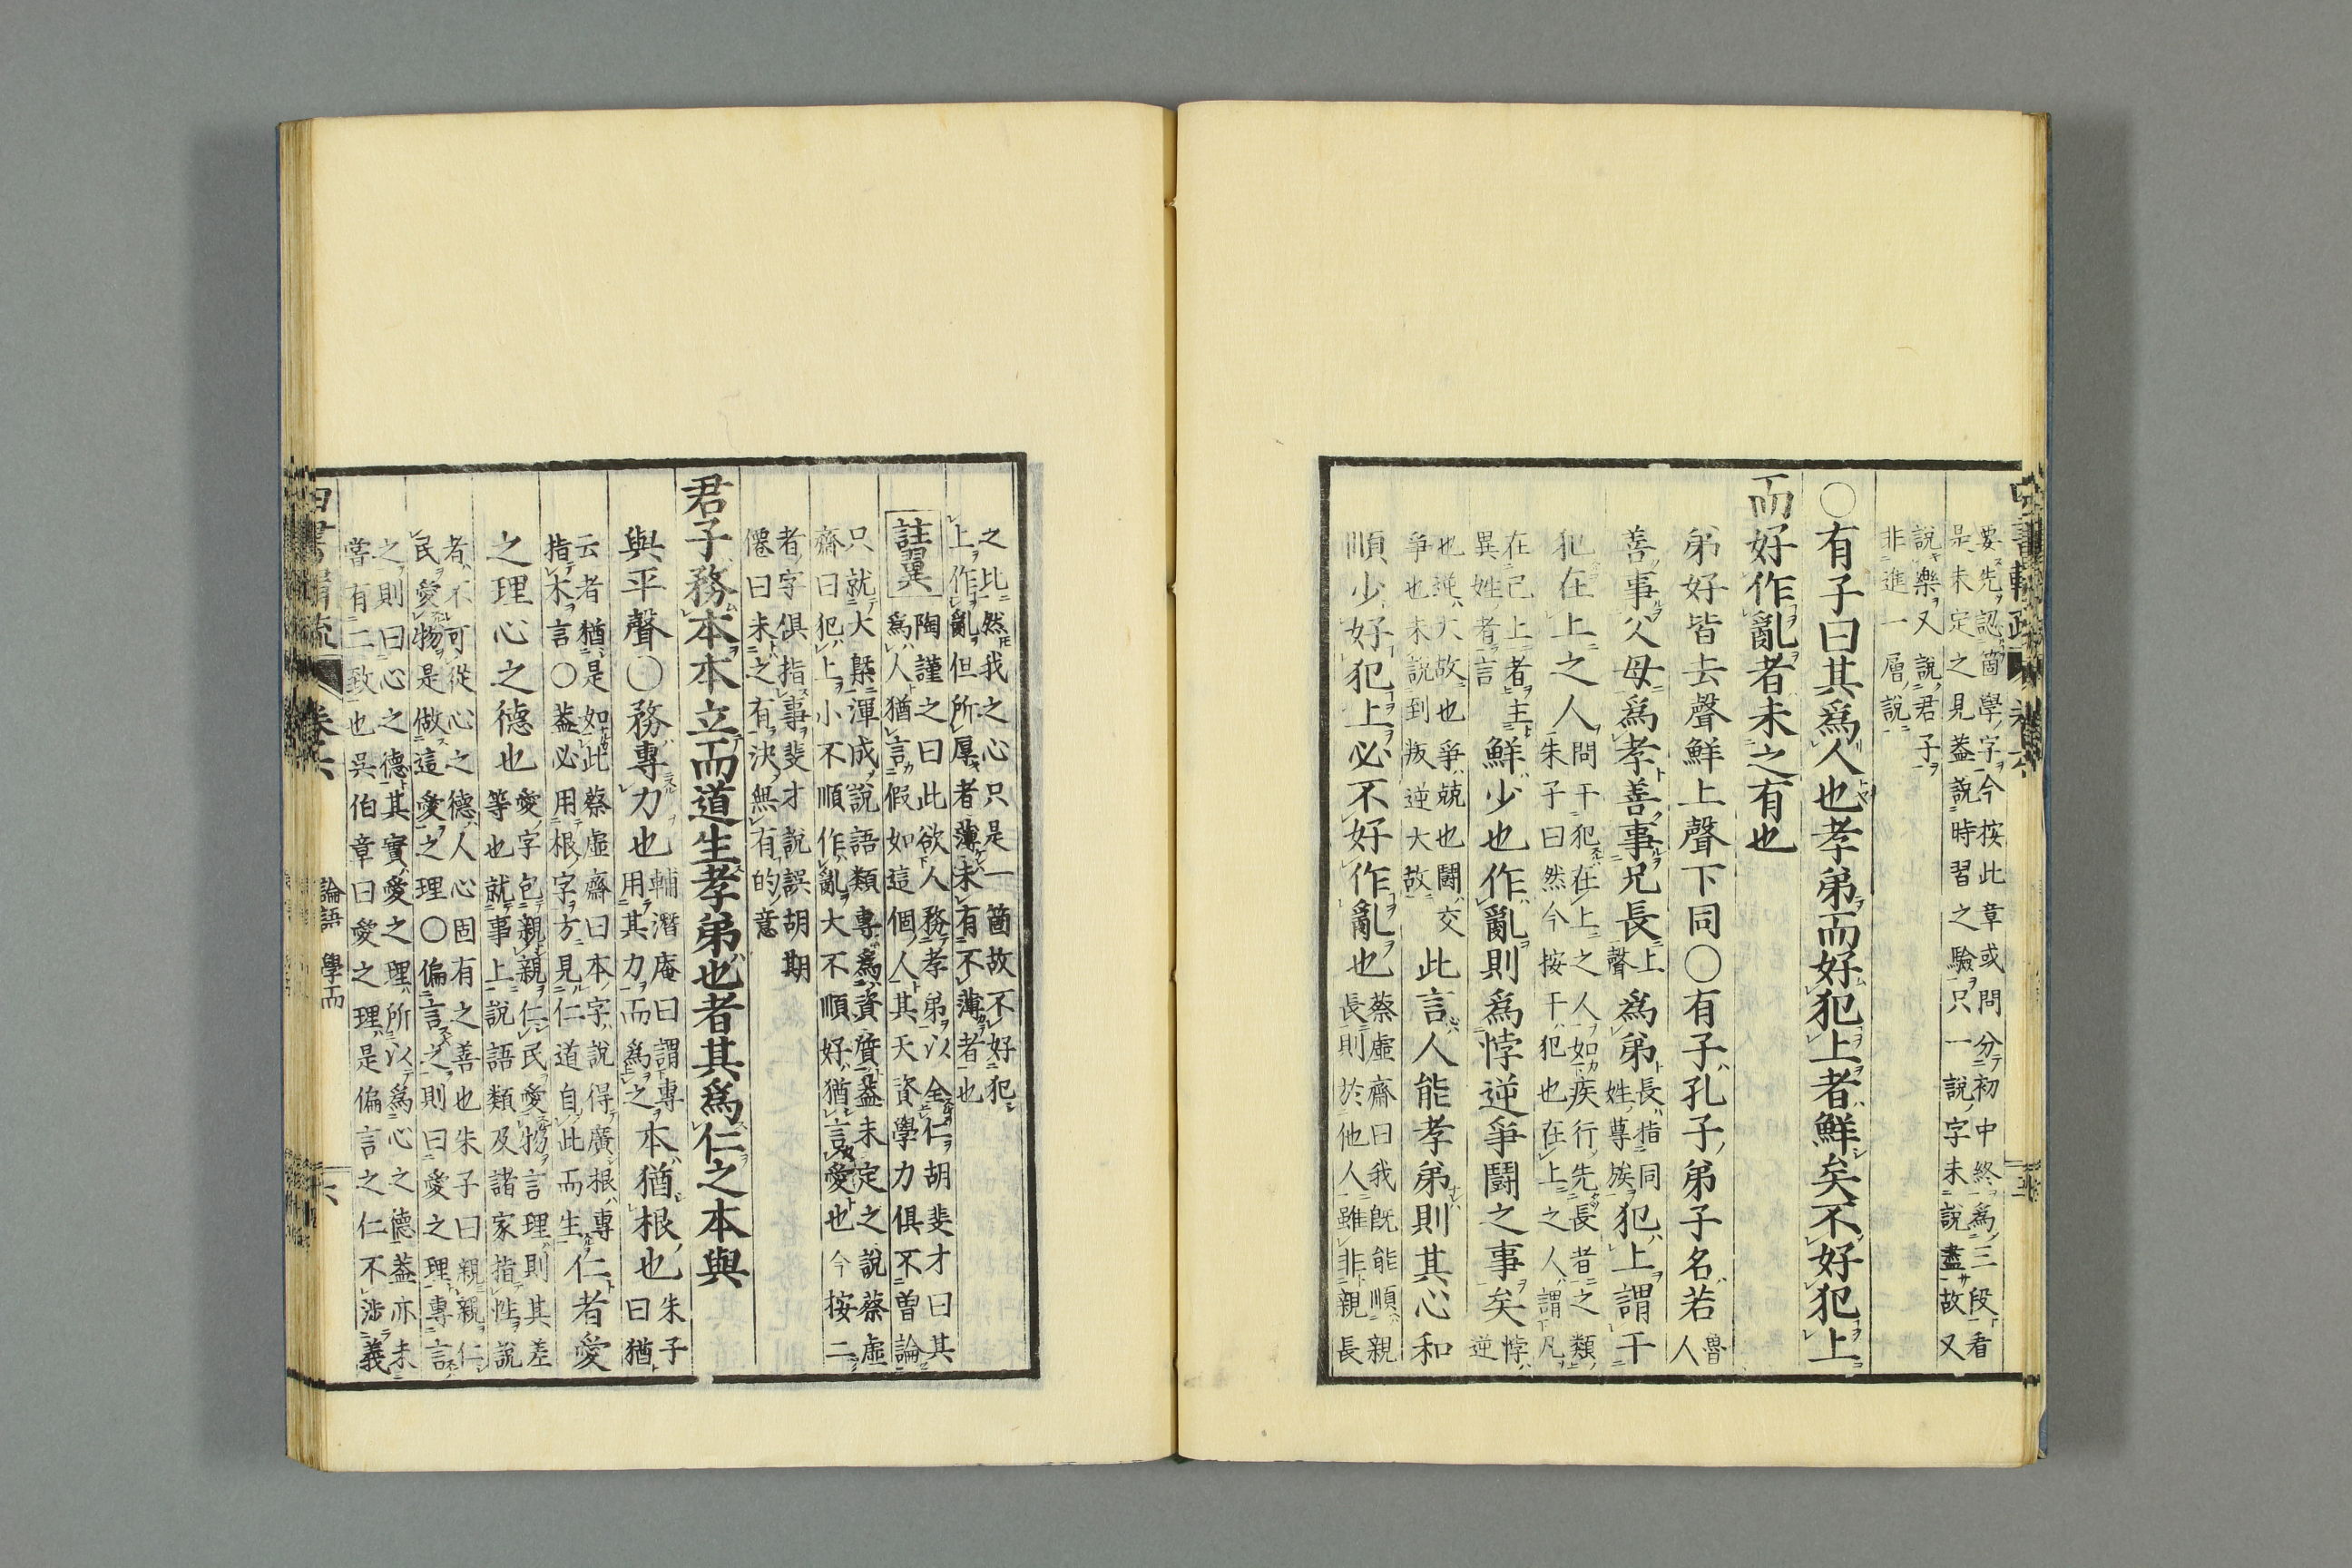 要先認箇學字今按此章或問分初中終爲三段看
是未定之見葢說時習之驗只一說字未說盡故又
說樂又說君子
非進一層說
○有子曰其爲人也孝弟而好犯上者鮮矣不好犯上
而好作亂者未之有也
弟好皆去聲鮮上聲下同○有子孔子弟子名若魯
人
善事父母爲孝善事兄長上
聲爲弟長指同
姓尊族犯上謂干
犯在上之人問干犯在上之人如疾行先長者之類
朱子曰然今按干犯也在上之人謂凡
在己上者主
異姓者言鮮少也作亂則爲悖逆爭鬪之事矣悖
逆
也逆大故也爭競也鬪交
爭也未說到叛逆大故此言人能孝弟則其心和
順少好犯上必不好作亂也蔡虛齋曰我既能順親
長則於他人雖非親長
之比然我之心只是一箇故不好犯
上作亂但所厚者薄未有不薄者也
註翼
陶謹之曰此欲人務孝弟以全仁胡斐才曰其
爲人猶言假如這個人其天資學力俱不曽論
只就大槩渾成說語類專爲資質葢未定之說蔡虛
齋曰犯上小不順作亂大不順好猶言愛也今按二
者字俱指事斐才說誤胡期
僊曰未之有決無有的意
君子務本本立而道生孝弟也者其爲仁之本與
與平聲○務專力也輔潛庵曰謂專
用其力而爲之本猶根也朱子
曰猶
云者猶是如此蔡虛齋曰本字說得廣根專
指木言○葢必用根字方見仁道自此而生仁者愛
之理心之德也愛字包親親仁民愛物言理則其差
等也就事上說語類及諸家指性說
者不可從心之德人心固有之善也朱子曰親親仁
民愛物是做這愛之理○偏言之則曰愛之理專言
之則曰心之德其實愛之理所以爲心之德葢亦未
嘗有二致也吳伯章曰愛之理是偏言之仁不涉義
論語 學而